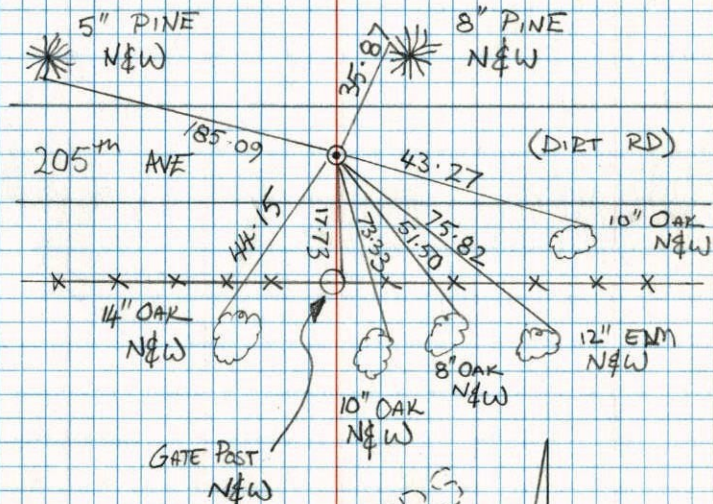 5" PINE
N&W
8" PINE
N&W
35.87
185.09
205th AVE
(DIRT RD)
43.27
44.15
17.73
73.33
51.50
75.82
10" OAK
N&W
14" OAK
N&W
12" ELM
N&W
8" OAK
N&W
10" OAK
N&W
GATE POST
N&W